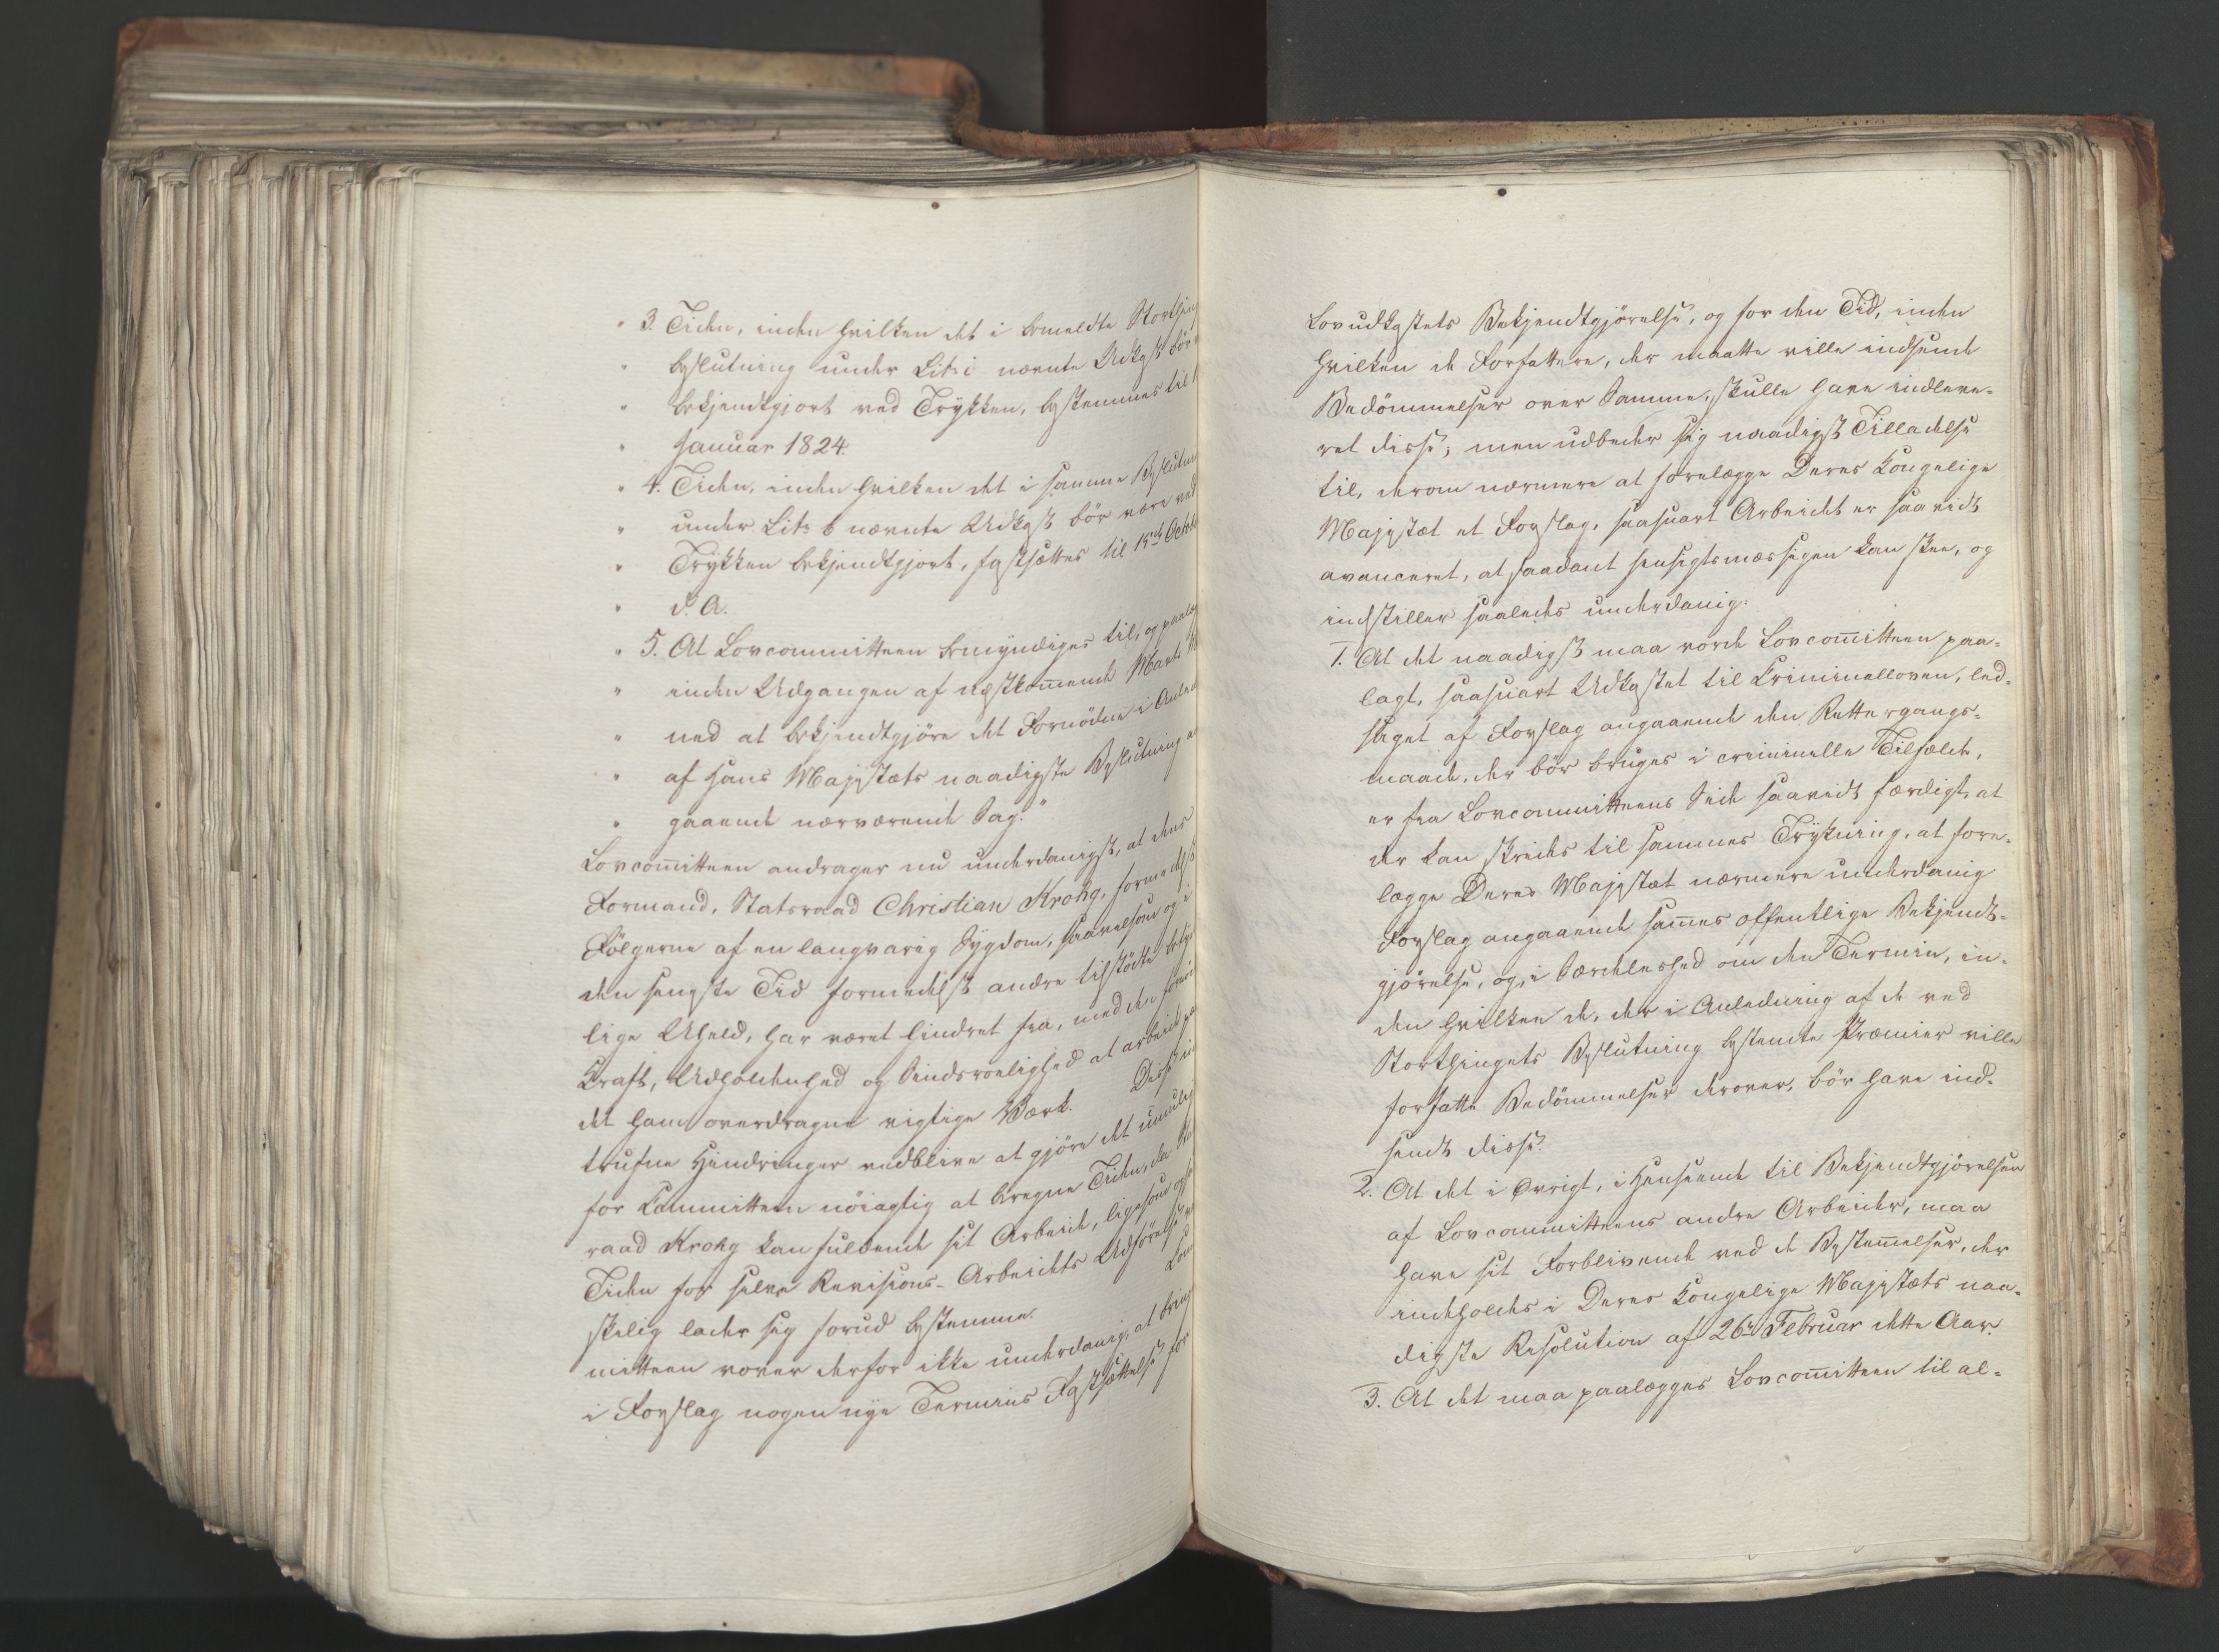 " 3. Tiden, inden hvilken det i bemeldte Storthing
" beslutning under Litr: i nævnte Udkast bør
" bekjendtgjort ved Trykken, bestemmes til
" Januar 1824.
" 4. Tiden, inden hvilken det i samme Beslutn
" under Litr b nævnte Udkast bør være ved
" Trykken bekjendtgjort, fastsættes til 15de Octob
" d. A.
" 5. At Lovcommitteen bemyndiges til, og paalæg
" inden Udgangen af næstkom̅ende Marts
" ned at bekjendtgjøre det Fornødne i Anled
" af Hans Majestæts naadigste Beslutning
" gaaende nærværende Sag."
Lovcom̅itteen andrager nu underdanigst, at dens
Formand, Statsraad Christian Krohg, formedelst
Følgerne af en langvarig Sygdom, saavelsom og i
den seneste Tid formedelst andre tilstødte bety
lige Uheld, har været hindret fra, med den forn
Kraft, Udholdenhed og Sindsroelighed at arbeide
det ham overdragne vigtige Værk. Disse in
trufne Hindringer vedblive at gjøre det umulig
for Committeen nøiagtig at beregne Tiden, da Stat
raad Krohg kan fuldende sit Arbeide, ligesom
Tiden for selve Revisions-Arbeidets Udførelse
skelig lader sig forud bestemme. Lovc
mitteen vover derfor ikke underdanig, at bring
i Forslag nogen nye Termins Fastsættelse for
Lovudkastets Bekjendtgjørelse, og for den Tid, inden
hvilken de Forfattere, der maatte ville indsende
Bedømmelser over Samme, skulle have indleve-
ret disse; men udbeder sig naadigst Tilladelse
til, derom nærmere at forelægge Deres Kongelige
Majestæt et Forslag, saasnart Arbeidet er saavidt
avanceret, at saadant hensigtsmæssigen kan skee, og
indstiller saaledes underdanig:
1. At det naadigst maa vorde Lovcom̅itteen paa-
lagt, saasnart Udkastet til Criminelloven, led-
saget af Forslag angaaende den Rettergangs-
maade, der bør bruges i criminelle Tilfælde,
er fra Lovcommitteens Side saavidt færdigt, at
der kan skrides til sammes Trykning, at fore-
lægge Deres Majestæt nærmere underdanig
Forslag angaaende sam̅es offentlige Bekjendt-
gjørelse, og, i Særdeleshed om den Termin, in-
den hvilken de, der i Anledning af de ved
Storthingets Beslutning bestemte Præmier ville
forfatte Bedømmelser derover, bør have ind-
sendt disse.
2. At det i Øvrigt, i Henseende til Bekjendtgjørelsen
af Lovcommitteens andre Arbeider, maa
have sit Forblivende ved de Bestem̅elser, der
indeholdes i Deres Kongelige Majestæts naa-
digste Resolution af 26de Februar dette Aar.
3. At det maa paalægges Lovcom̅itteen til al-